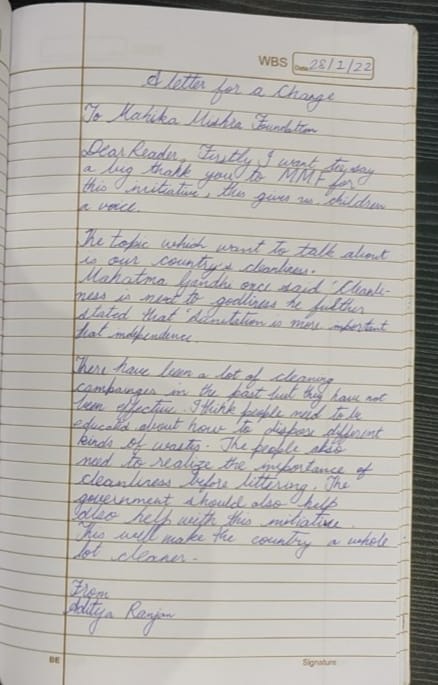 WBS Date 28/1/22
A letter for a Change
To Mahika Mishra Foundation
Dear Reader, Firstly I want to say
a big thank you to MMF for
this initiative, this gives us children
a voice.
The topic which want to talk about
is our country's cleanliness.
Mahatma Gandhi once said "Cleanli-
ness is next to godliness he further
stated that "Sanitation is more important
that independence.
There have been a lot of cleaning
campainges in the past but they have not
been effective. I think people need to be
educated about how to dispose different
kinds of wastes. The people also
need to realize the importance of
cleanliness before littering. The
government should also help
also help with this initiative.
This will make the country a whole
lot cleaner.
From
Aditya Ranjan
BE Signature